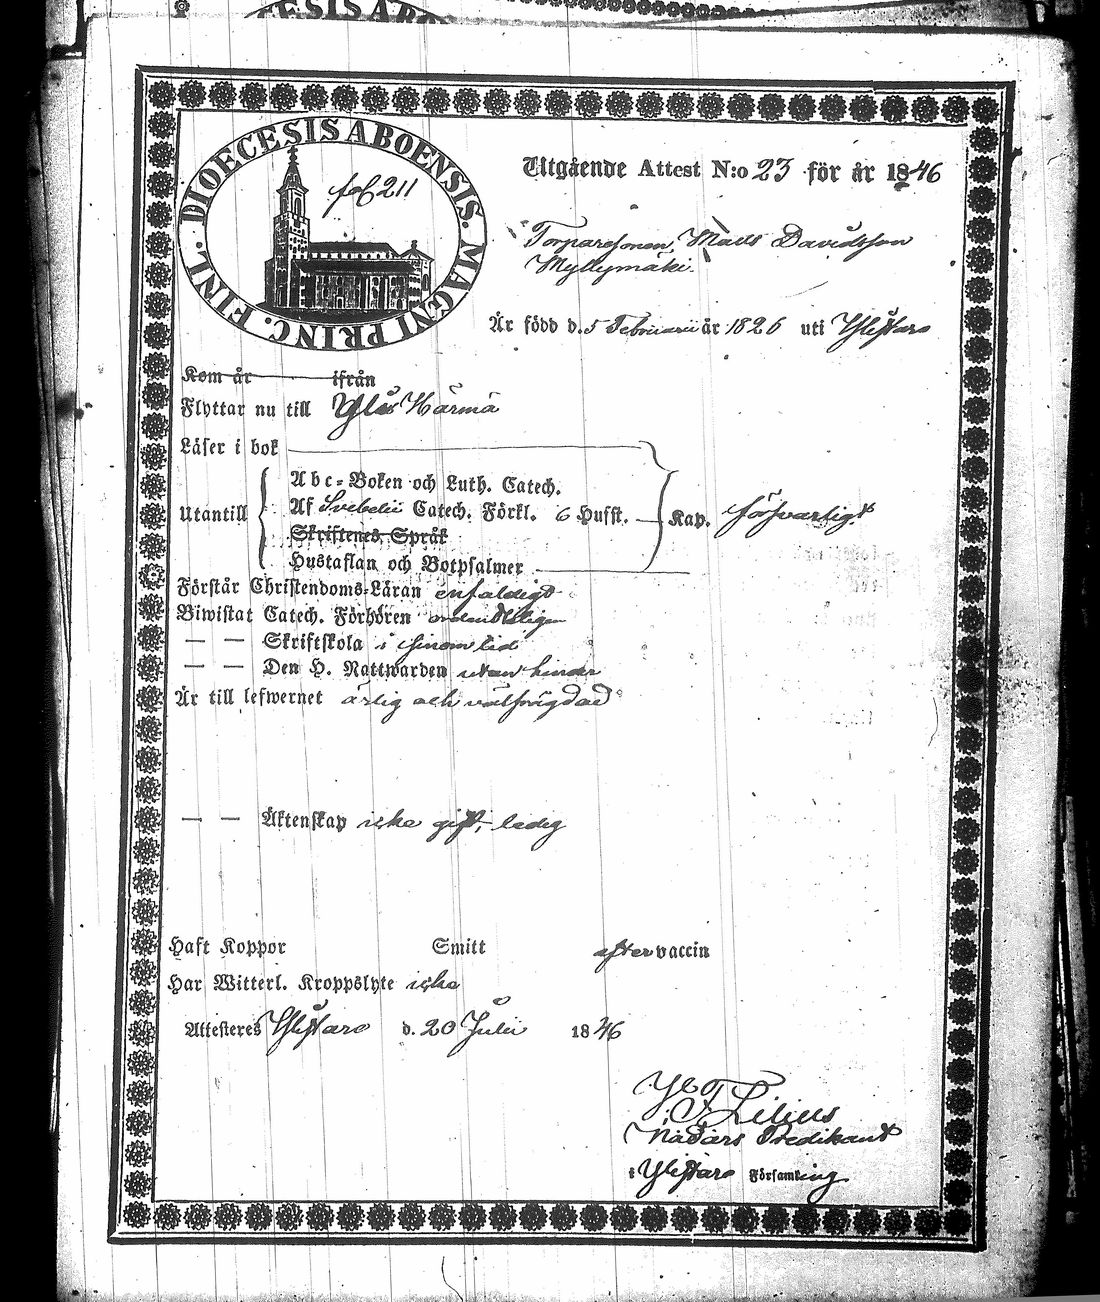 DIOECESIS ABOENSIS. MAGNI PRINC. FINL.
fol 211
Utgående Attest N:o 23 för år 1846
Torparesonen, Matts Davidsson
Myllymäki
Är född d. 5 Februarii år 1826 uti Ylistaro
Kom år ifrån
Flyttar nu till Ylihärmä
Läser i bok
Abc-Boken och Luth. Catech.
Utantill Af Svebelii Catech. Förkl. 6 Hufst. Kap. försvarligt
Skriftenes Språk
Hustaflan och Botpsalmer
Förstår Christendoms-Läran enfaldigt
Biwistat Catech. Förhören ordenteligen
— — Skriftskola i sinom tid
— — Den H. Nattwarden utan hinder
Är till lefwernet ärlig och välfrägdad
— — Äktenskap icke gift, ledig
Haft Koppor Smitt efter vaccin
Har Witterl. Kroppslyte icke
Attesteres Ylistaro d. 20 Julii 1846
Lilius
Nådårs Predikant
i Ylistaro Församling